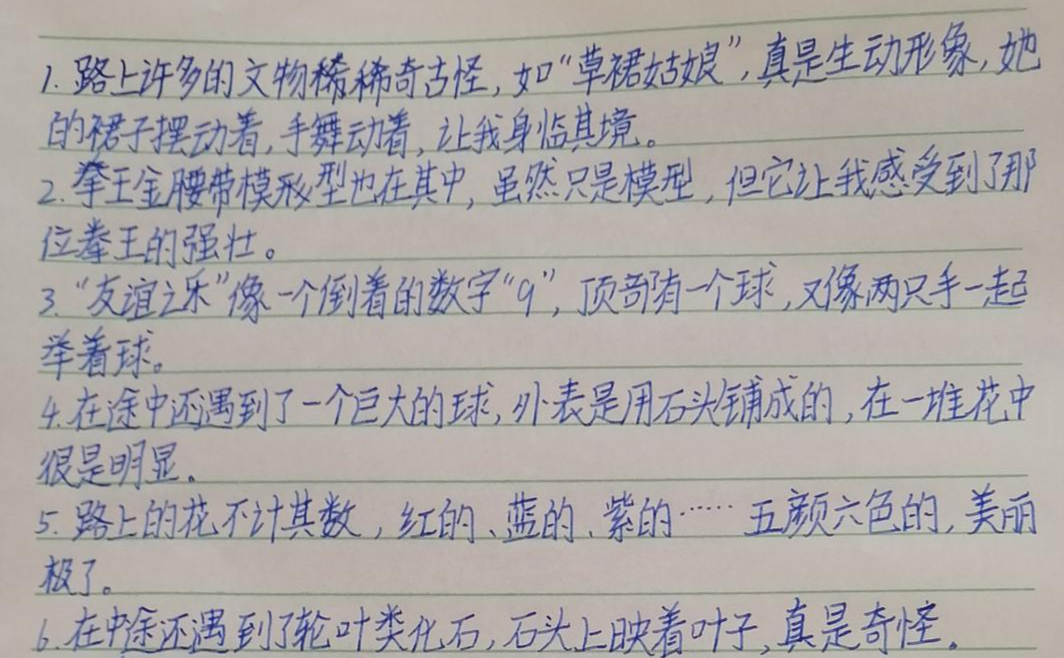 1. 路上许多的文物稀稀奇古怪，如“草裙姑娘”，真是生动形象，她
的裙子摆动着，手舞动着，让我身临其境。
2. 拳王金腰带模形型也在其中，虽然只是模型，但它让我感受到了那
位拳王的强壮。
3. “友谊之乐”像一个倒着的数字“9”，顶部有一个球，又像两只手一起
举着球。
4. 在途中还遇到了一个巨大的球，外表是用石头铺成的，在一堆花中
很是明显。
5. 路上的花不计其数，红的、蓝的、紫的……五颜六色的，美丽
极了。
6. 在中途还遇到了轮叶类化石，石头上映着叶子，真是奇怪。